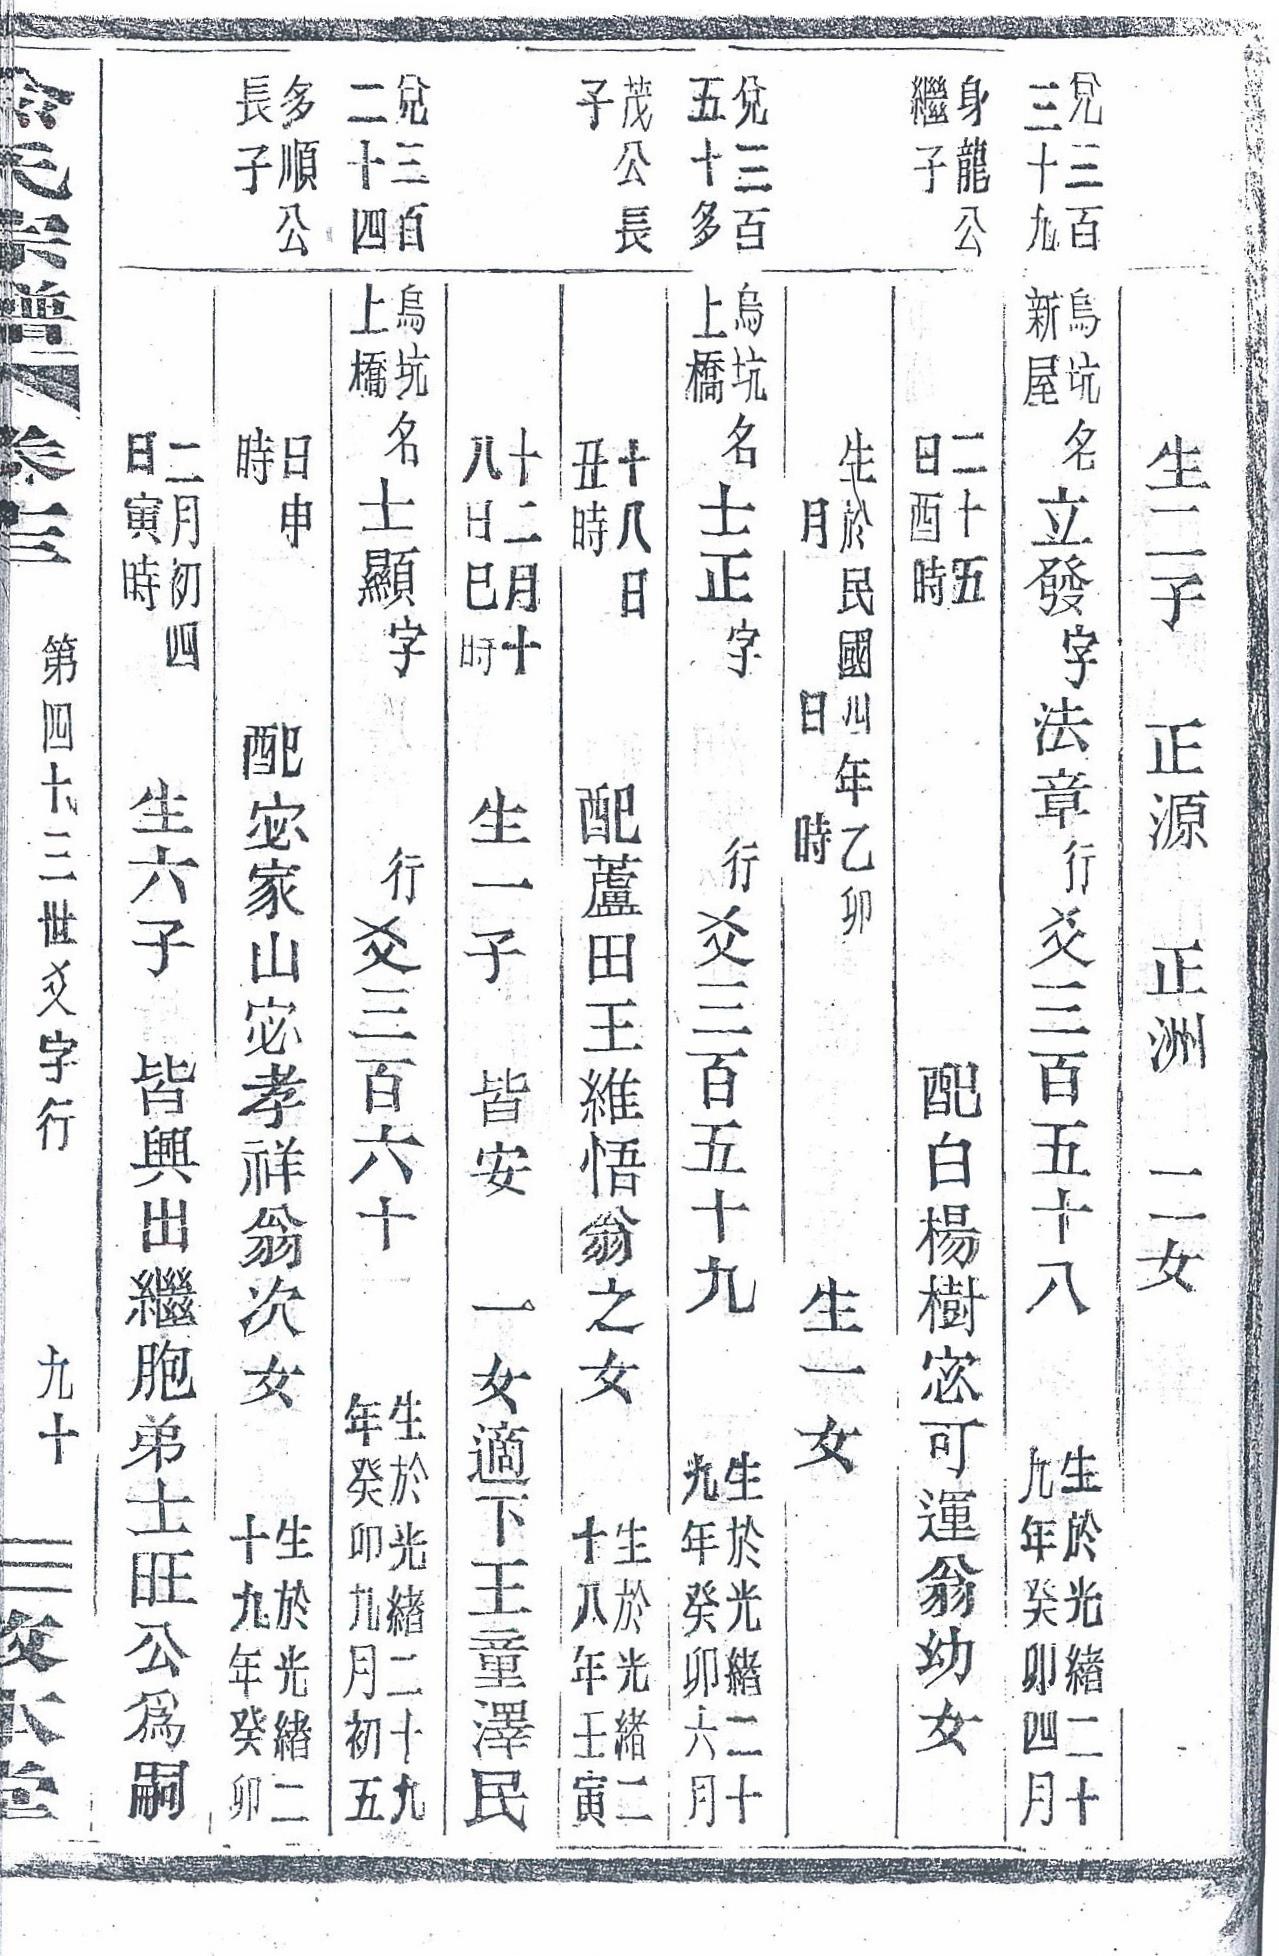 生二子　正源　正洲　二女
兌三百
三十九
烏坑
新屋
名立發字法章行爻三百五十八
生於光緒二十
九年癸卯四月
身龍公
繼子
二十五
日酉時
配白楊樹宓可運翁幼女
生於民國四年乙卯
月　日　時
生一女
兌三百
五十多
烏坑
上橋
名士正字　行爻三百五十九
生於光緒二十
九年癸卯六月
茂公長
子
十八日
丑時
配蘆田王維悟翁之女
生於光緒二
十八年壬寅
十二月十
八日巳時
生一子　皆安　一女適下王童澤民
兌三百
二十四
烏坑
上橋
名士顯字　行爻三百六十
生於光緒二十九
年癸卯九月初五
多順公
長子
日申
時
配宓家山宓孝祥翁次女
生於光緒二
十九年癸卯
二月初四
日寅時
生六子　皆興出繼胞弟士旺公爲嗣
氏宗譜　卷三　第四十三世爻字行　九十　敦本堂